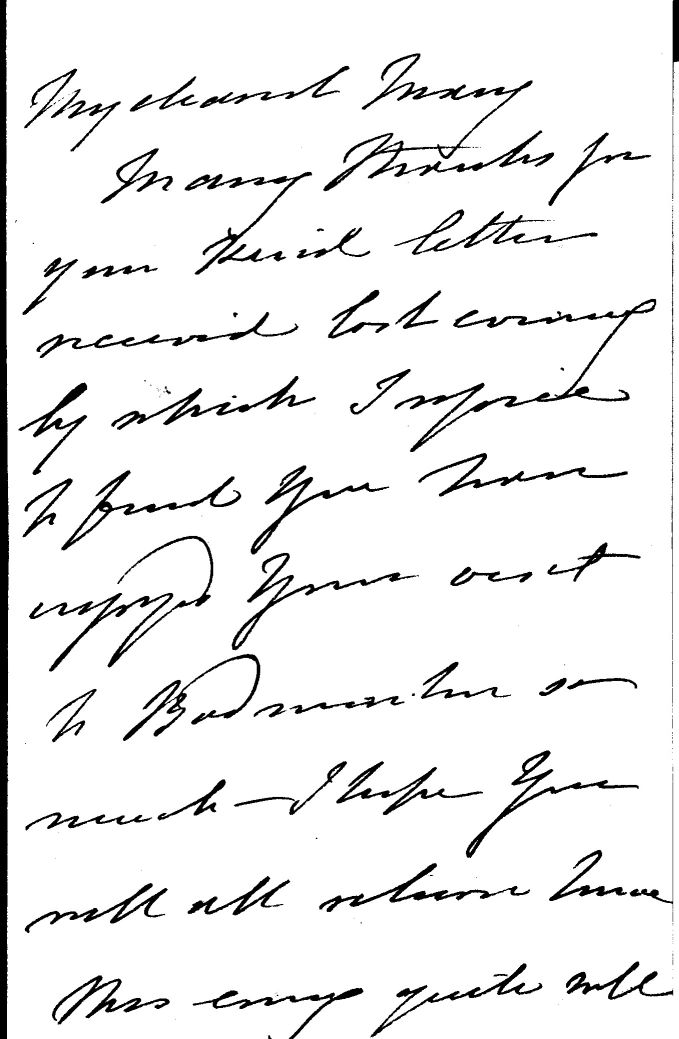 My dearest Mary
Many thanks for
your kind letter
received last evening
by which I rejoice
to find you have
enjoyed your visit
to Badminton so
much – I hope you
will all return home
this eveng quite well